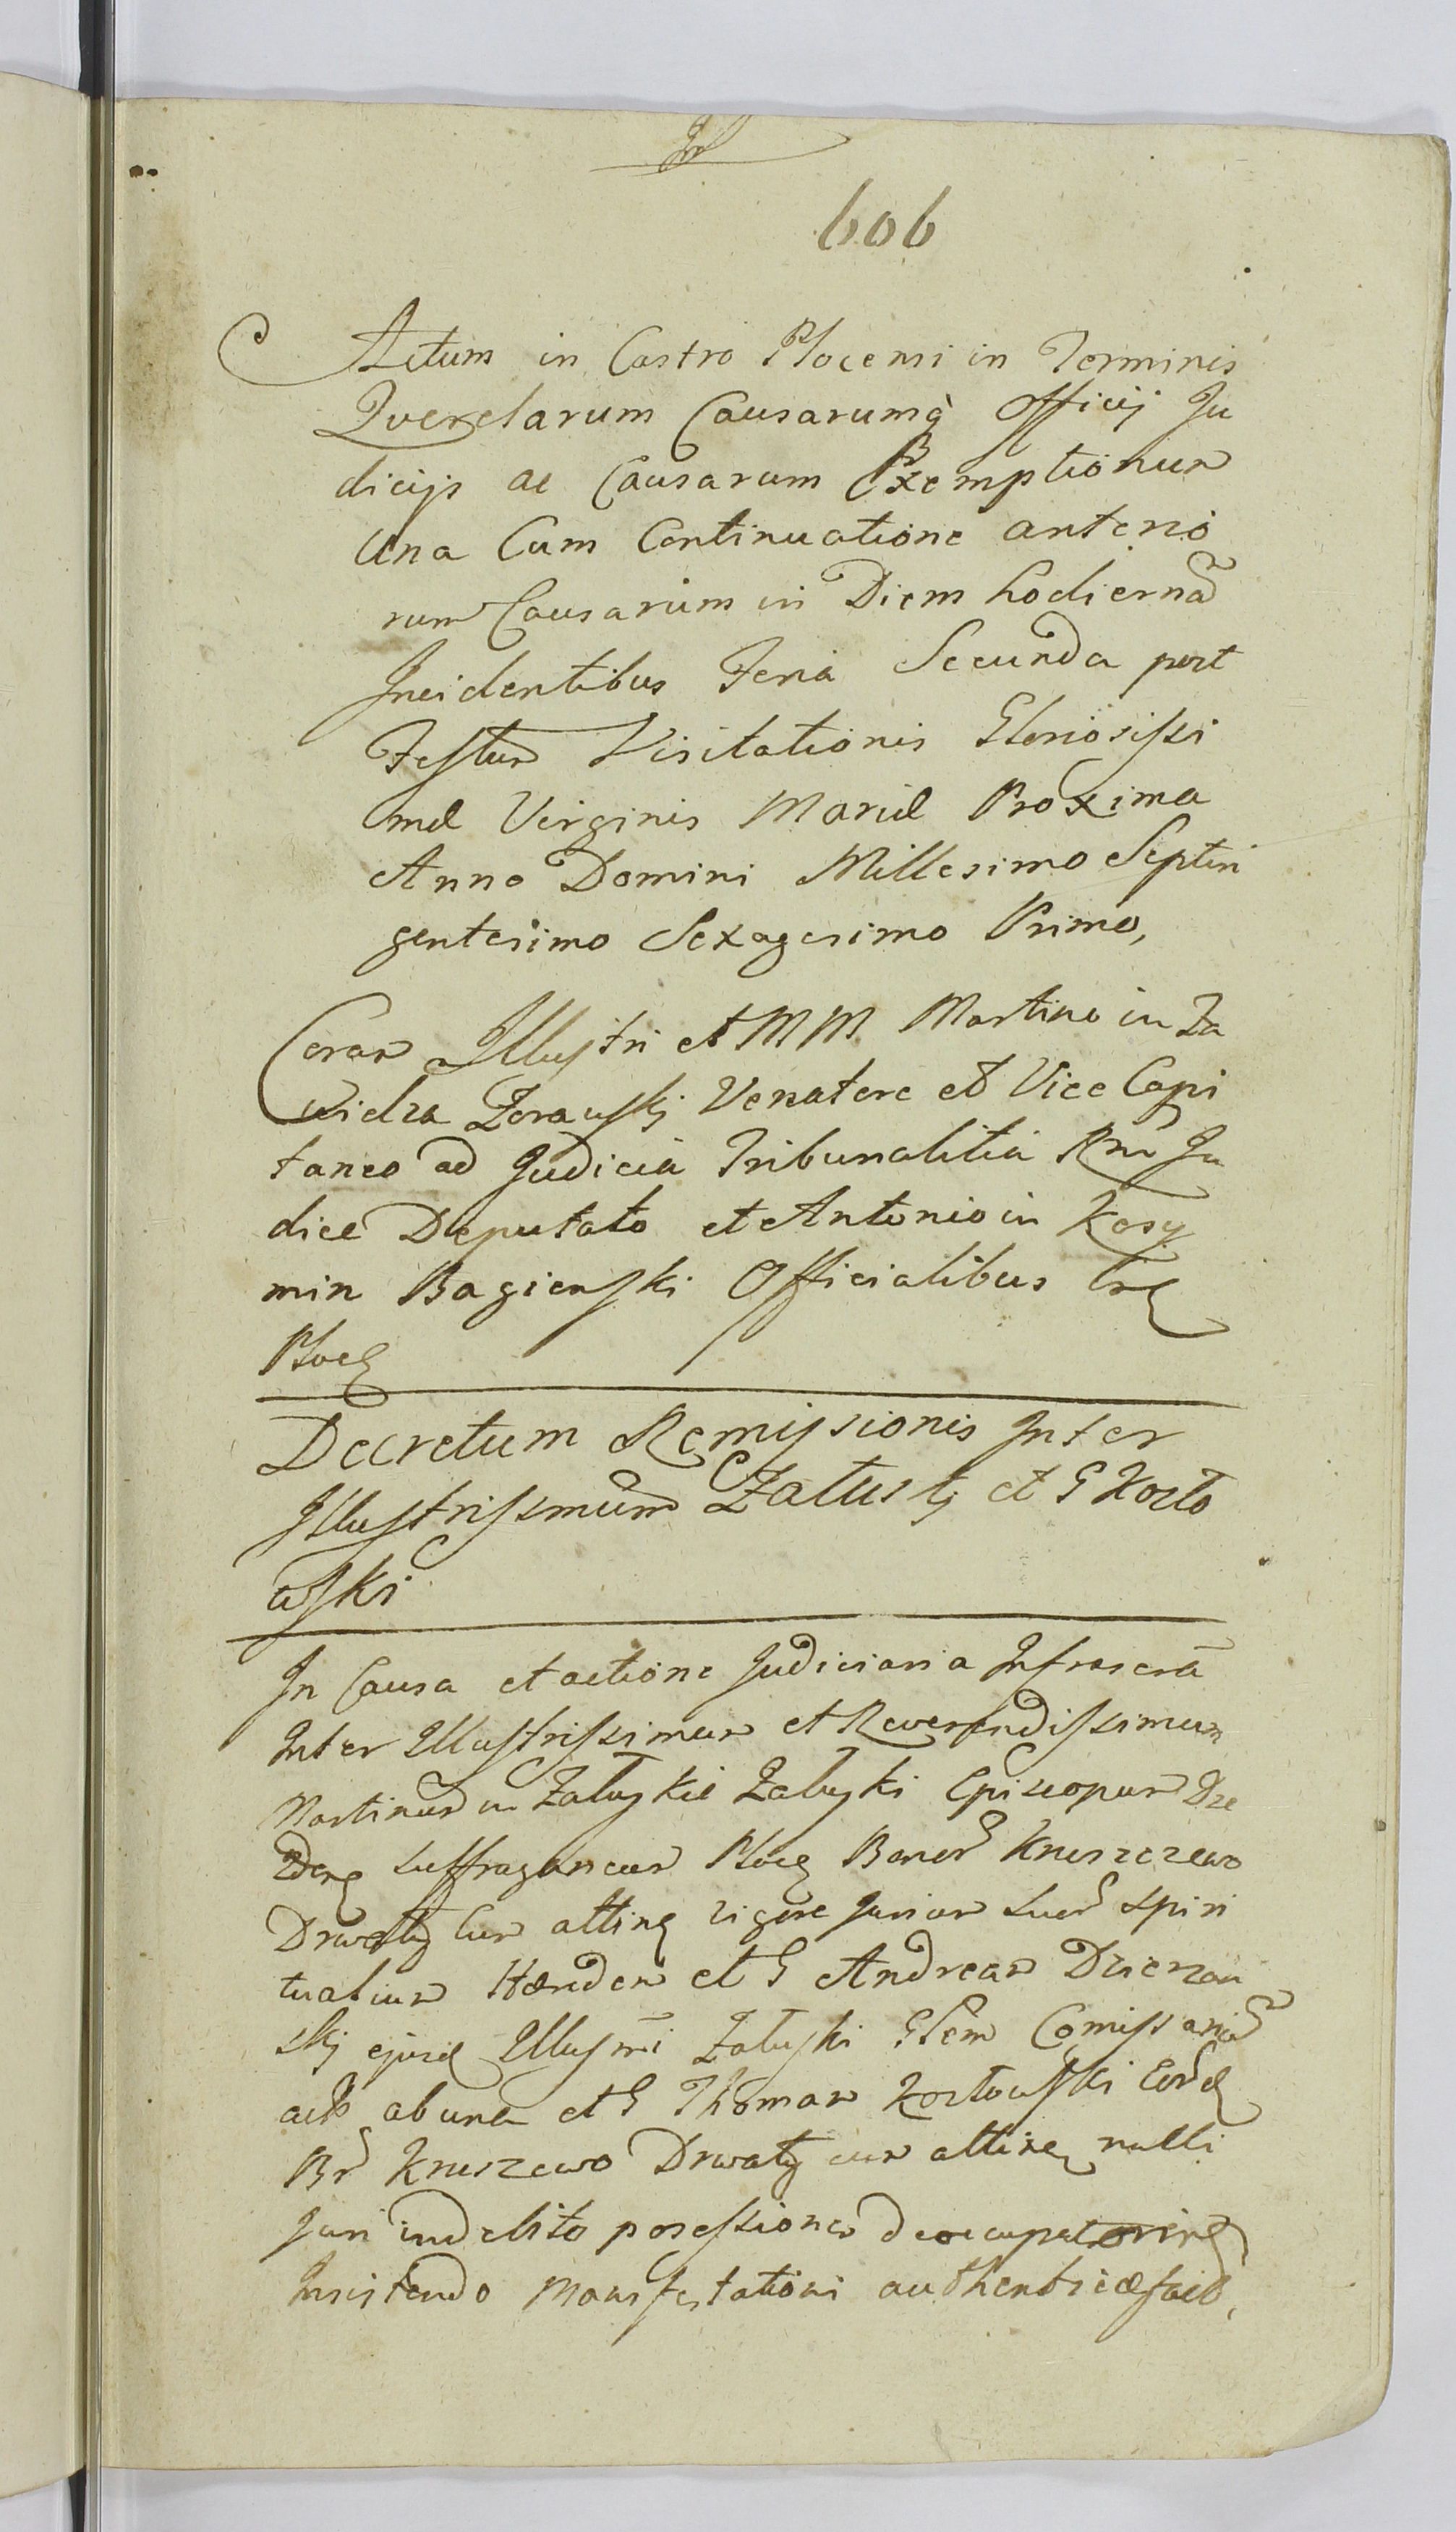 606
Actum in Castro Plocensi in Terminis
Querelarum Causarumq̀ Officij Ju
dicijs ac Causarum Exemptionum
Una Cum Continuatione anterio
rum Causarum in Diem hodiernã
Incidentibus Feria Secunda post
Festum Visitationis Gloriosissi
mæ Virginis Mariæ Proxima
Anno Domini Millesimo Septin
gentesimo Sexagesimo Primo,
Coram Illustri et MM Martino in Za
widza Zorawskj Venatore et Vice Capi
taneo ad Judicia Tribunalitia Rni Ju
dice Deputato et Antonio in Kosy
min Bagienski Officialibus
Plocę
Decretum Remissionis Inter
Illustrissimum Załuskj et G Kozło
wski
In Causa et actione Judiciaria Infrascrã
Inter Illustrissimum et Reverendissimum
Martinum in Załuskie Załuski Episcopum Dre
Suffraganeum Plocę Bonor Kruszczewo
Drwały cum attinę vigore Jurium Suor Spiri
tualium Hæredem et G Andream Dzierzan
skj ejusd Illusmi Załuski Glem Comissariũ
acts ab una et G Thomam Kozłowski eord
Br Kruszewo Drwały cum attinę nulli
Juri indebito possessionem
Insistendo Manifestationi authentice fact,